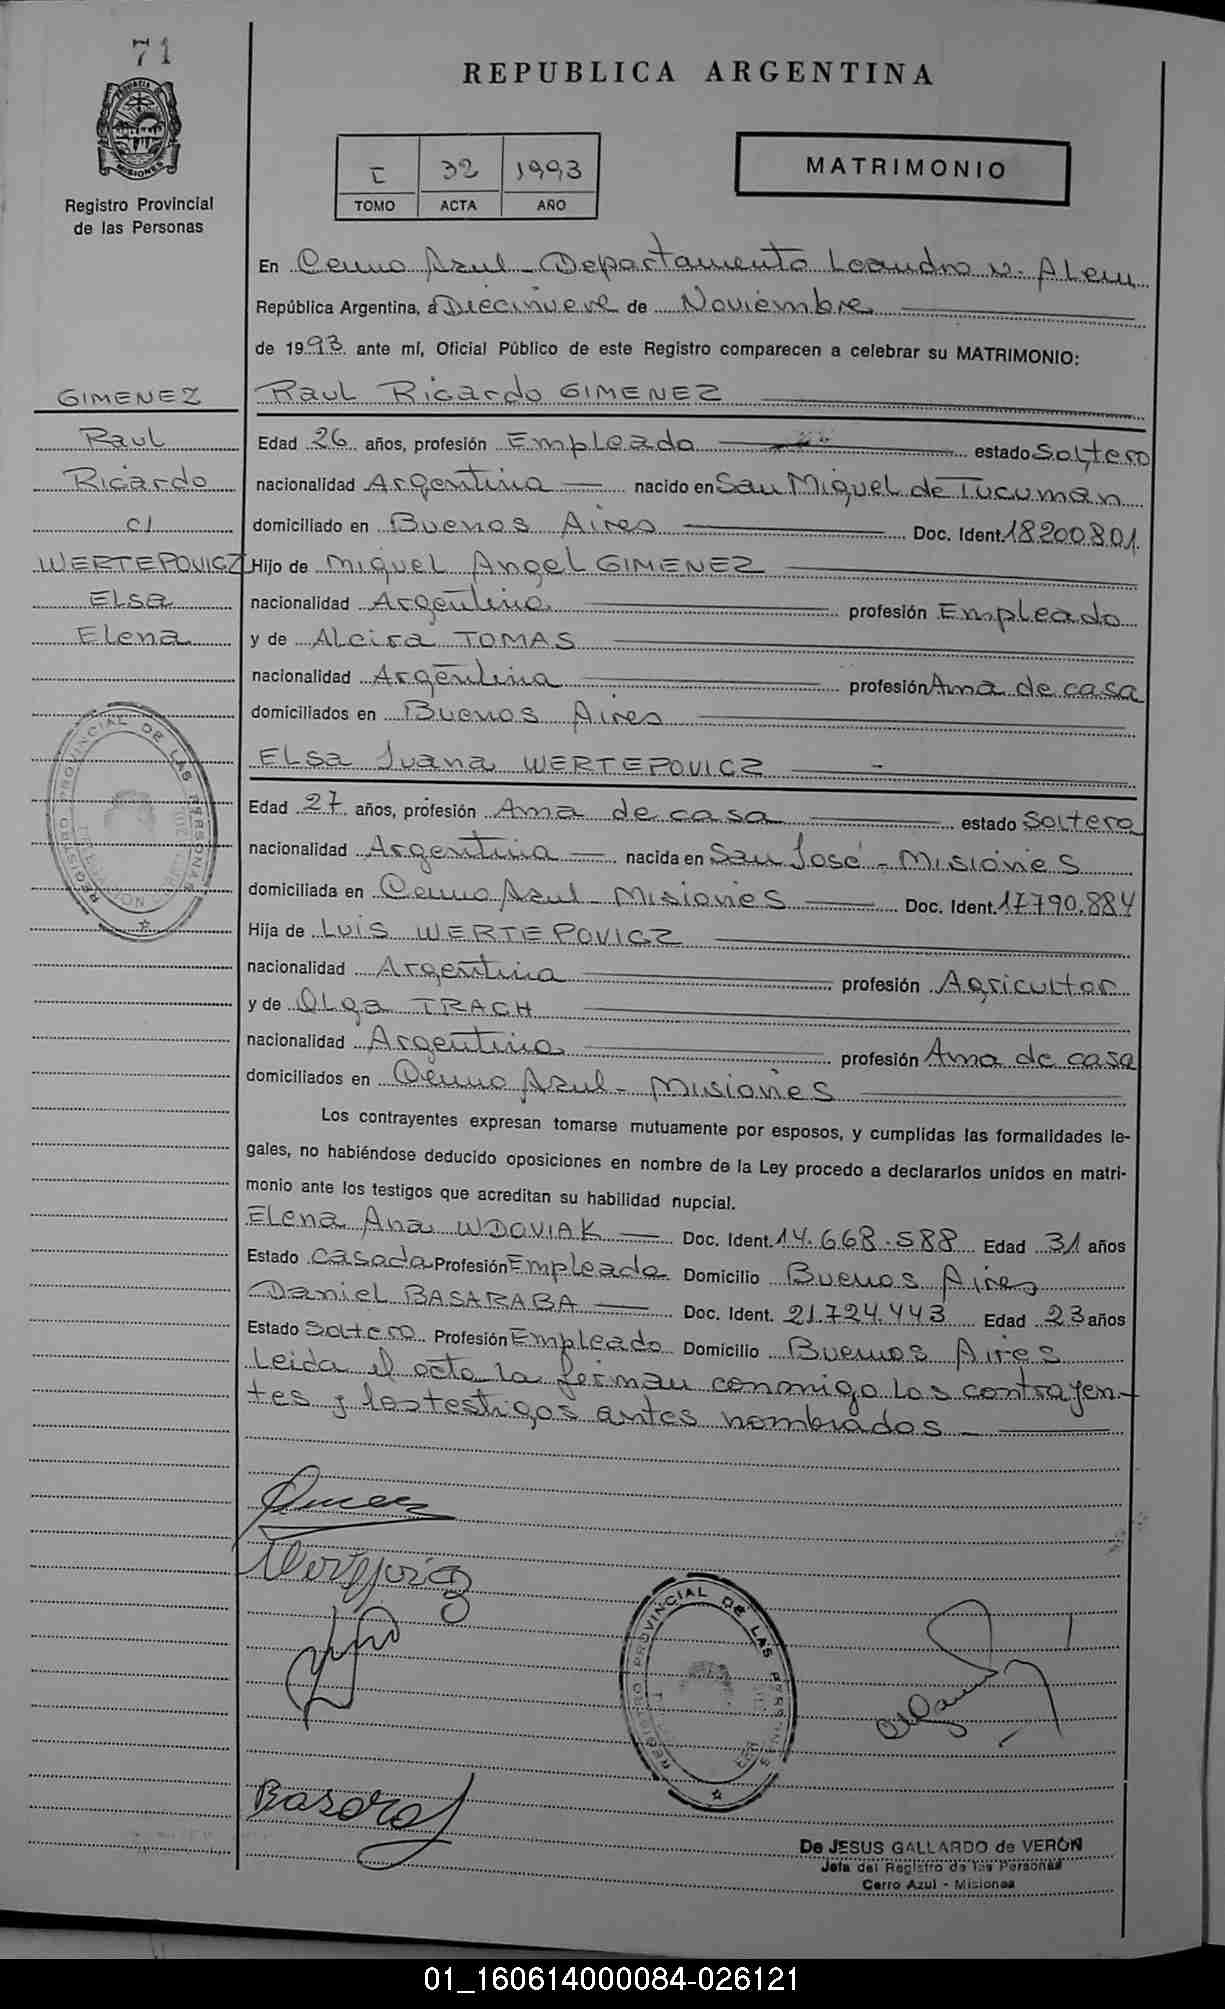 71
REPUBLICA ARGENTINA
PROVINCIA DE MISIONES
I 32 1993
TOMO ACTA AÑO
MATRIMONIO
Registro Provincial
de las Personas
En Cerro Azul - Departamento Leandro N. Alem
República Argentina, a Diecinueve de Noviembre
de 1993 ante mí, Oficial Público de este Registro comparecen a celebrar su MATRIMONIO:
GIMENEZ
Raul
Ricardo
c/
WERTEPOVICZ
Elsa
Elena
Raul Ricardo GIMENEZ
Edad 26 años, profesión Empleado estado Soltero
nacionalidad Argentina nacido en San Miguel de Tucuman
domiciliado en Buenos Aires Doc. Ident. 18.200.801.
Hijo de Miguel Angel GIMENEZ
nacionalidad Argentina profesión Empleado
y de Alcira TOMAS
nacionalidad Argentina profesión Ama de casa
domiciliados en Buenos Aires
Elsa Juana WERTEPOVICZ
Edad 27 años, profesión Ama de casa estado Soltera
nacionalidad Argentina nacida en San José - Misiones
domiciliada en Cerro Azul - Misiones Doc. Ident. 17.790.884
Hija de Luis WERTEPOVICZ
nacionalidad Argentina profesión Agricultor
y de Olga TRACH
nacionalidad Argentina profesión Ama de casa
domiciliados en Cerro Azul - Misiones
Los contrayentes expresan tomarse mutuamente por esposos, y cumplidas las formalidades le-
gales, no habiéndose deducido oposiciones en nombre de la Ley procedo a declararlos unidos en matri-
monio ante los testigos que acreditan su habilidad nupcial.
Elena Ana WDOVIAK Doc. Ident. 14.668.588 Edad 31 años
Estado Casada Profesión Empleada Domicilio Buenos Aires
Daniel BASARABA Doc. Ident. 21.724.443 Edad 23 años
Estado Soltero Profesión Empleado Domicilio Buenos Aires
Leida el acta la firman conmigo los contrayen-
tes y los testigos antes nombrados
REGISTRO PROVINCIAL DE LAS PERSONAS
REGISTRO PROVINCIAL DE LAS PERSONAS
De JESUS GALLARDO de VERÓN
Jefa del Registro de las Personas
Cerro Azul - Misiones
01_160614000084-026121